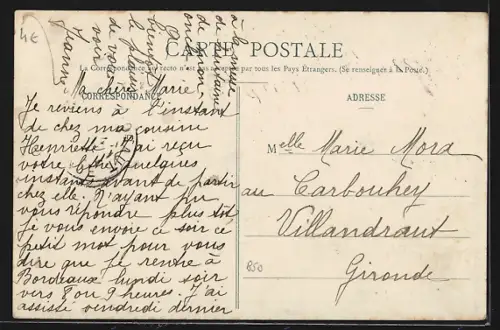 4€
CARTE POSTALE
La Correspondance au recto n'est pas acceptée par tous les Pays Étrangers. (Se renseigner à la Poste.)
CORRESPONDANCE
ADRESSE
Ma chère Marie
Je reviens à l'instant
de chez ma cousine
Henriette. J'ai reçu
votre lettre quelques
instants avant de partir
chez elle. N'ayant pu
vous répondre plus tôt
je vous envoie ce soir ce
petit mot pour vous
dire que je rentre à
Bordeaux lundi soir
vers 8 ou 9 heures. J'ai
assisté vendredi dernier
à la messe
de
de mon
oncle.
bientôt
le plaisir
de vous
voir
Jeanne
Melle Marie Mora
au Carbouhey
Villandraut
Gironde
850